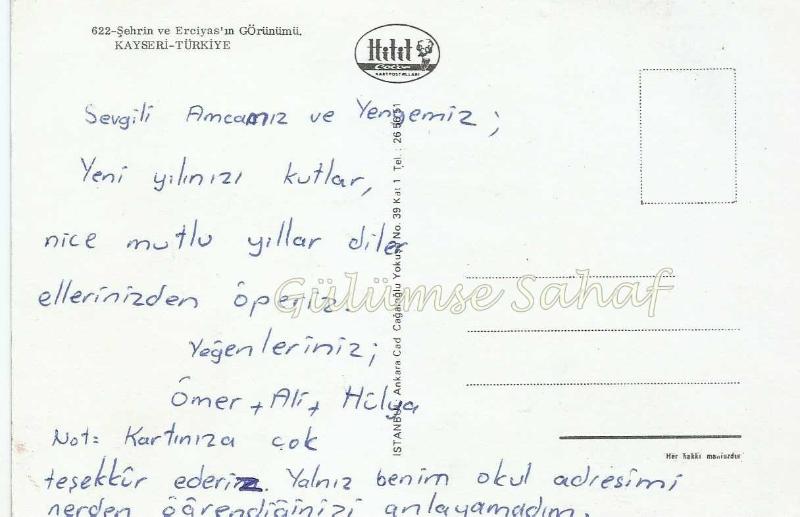 622-Şehrin ve Erciyas'ın Görünümü.
KAYSERİ-TÜRKİYE
Hitit
Color
KARTPOSTALLARI
Sevgili Amcamız ve Yengemiz;
Yeni yılınızı kutlar,
nice mutlu yıllar diler
ellerinizden öperiz.
Yeğenleriniz;
Ömer + Ali + Hülya
Not= Kartınıza çok
teşekkür ederiz. Yalnız benim okul adresimi
nerden öğrendiğinizi anlayamadım.
İSTANBUL: Ankara Cad Cağaloğlu Yokuşu No. 39 Kat 1 Tel.: 26 56 51
Gülümse Sahaf
Her hakkı mahfuzdur